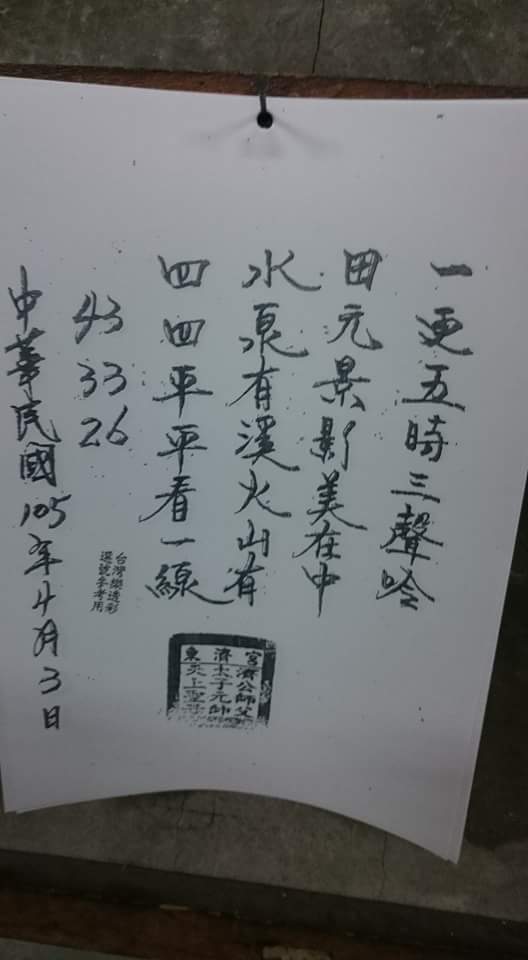 一更五時三聲唫
田元景影美在中
水泉有溪火山有
四四平平看一線
43
33
26
中華民國105年4月3日
台灣樂透彩
選號參考用
東濟宮
濟公師父
太子元帥
炎上聖